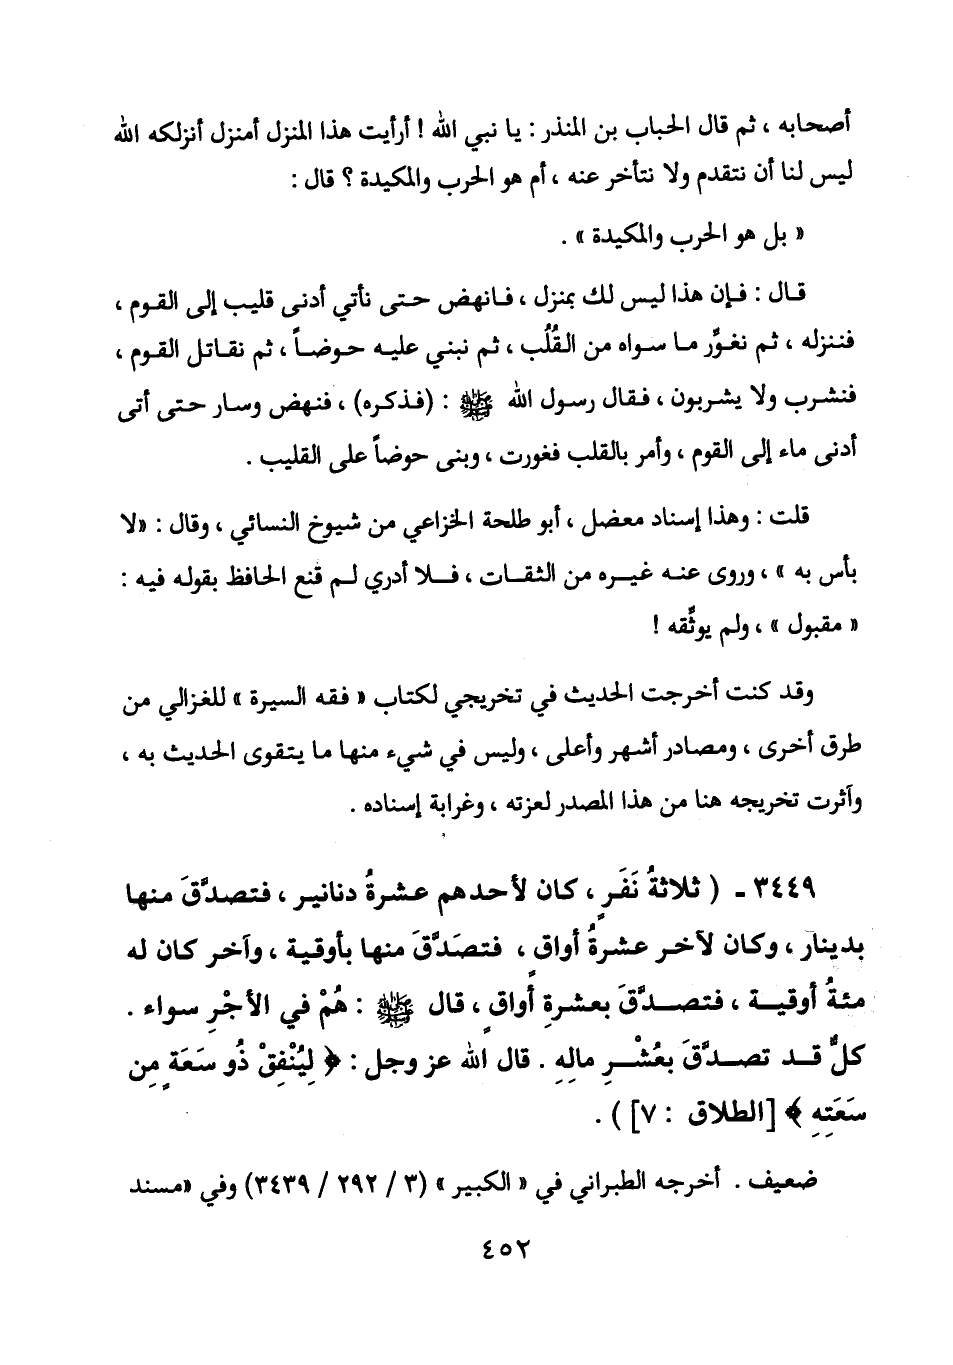 أصحابه ، ثم قال الحباب بن المنذر : يا نبي الله ! أرأيت هذا المنزل أمنزل أنزلكه الله
ليس لنا أن نتقدم ولا نتأخر عنه ، أم هو الحرب والمكيدة ؟ قال :
« بل هو الحرب والمكيدة » .
قال : فإن هذا ليس لك بمنزل ، فانهض حتى نأتي أدنى قليب إلى القوم ،
فننزله ، ثم نغوِّر ما سواه من القُلُب ، ثم نبني عليه حوضاً ، ثم نقاتل القوم ،
فنشرب ولا يشربون ، فقال رسول الله ﷺ : (فذكره) ، فنهض وسار حتى أتى
أدنى ماء إلى القوم ، وأمر بالقلب فغورت ، وبنى حوضاً على القليب .
قلت : وهذا إسناد معضل ، أبو طلحة الخزاعي من شيوخ النسائي ، وقال : «لا
بأس به » ، وروى عنه غيره من الثقات ، فلا أدري لم قنع الحافظ بقوله فيه :
« مقبول » ، ولم يوثِّقه !
وقد كنت أخرجت الحديث في تخريجي لكتاب « فقه السيرة » للغزالي من
طرق أخرى ، ومصادر أشهر وأعلى ، وليس في شيء منها ما يتقوى الحديث به ،
وآثرت تخريجه هنا من هذا المصدر لعزته ، وغرابة إسناده .
٣٤٤٩ - ( ثلاثةُ نَفَرٍ ، كان لأحدهم عشرةُ دنانير ، فتصدَّقَ منها
بدينار ، وكان لآخر عشرةُ أواق ، فتصَدَّقَ منها بأوقية ، وآخر كان له
مئةُ أوقية ، فتصدَّقَ بعشرةِ أواقٍ ، قال ﷺ : هُمْ في الأجْرِ سواء .
كلٌّ قد تصدَّقَ بعُشْرِ مالِهِ . قال الله عز وجل : ﴿ لِيُنْفِقْ ذُو سَعَةٍ مِن
سَعَتِهِ ﴾ [الطلاق : ٧] ) .
ضعيف . أخرجه الطبراني في « الكبير » (٣ / ٢٩٢ / ٣٤٣٩) وفي «مسند
٤٥٢